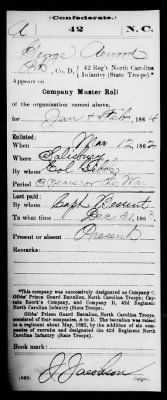 (Confederate.)
A 42 N.C.
George
Pvt, Co. D, 42 Reg't North Carolina
Infantry (State Troops).
Appears on
Company Muster Roll
of the organization named above,
for Jan & Feb, 1864
Enlisted:
When Mar 12, 1862
Where Salisbury
By whom Col Gibbs
Period 3 years or the War
Last paid:
By whom Capt
To what time Dec 31, 1863
Present or absent Present
Remarks:
*This company was successively designated as Company
Gibbs' Prison Guard Battalion, North Carolina Troops; Cap-
tain Company and Company D, 42d Regiment
North Carolina Infantry (State Troops).
Gibbs' Prison Guard Battalion, North Carolina Troops,
consisted of four companies, A to D. The battalion was raised
to a regiment about May, 1862, by the addition of six com-
panies of recruits and designated as the 42d Regiment
North Carolina Infantry (State Troops).
Book mark:
J. Jacobson
(642) Copyist.